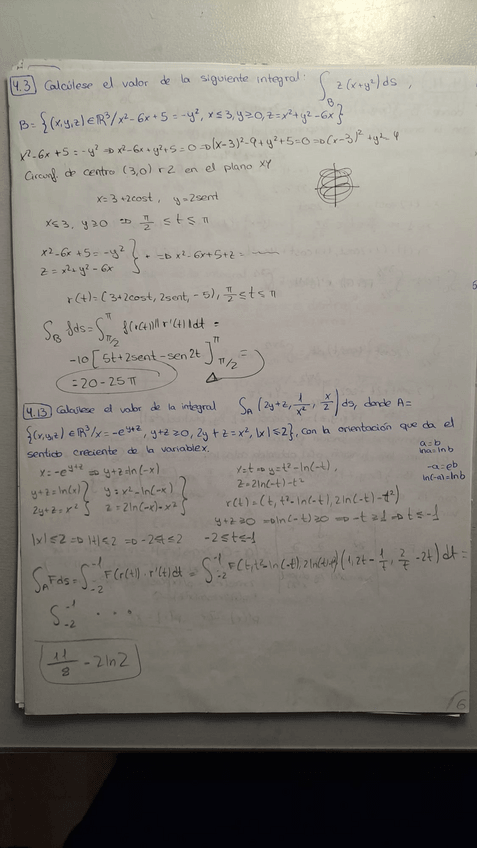 4.3 Calcúlese el valor de la siguiente integral: ∫_B z(x+y²)ds,
B={(x,y,z)∈ℝ³/x²-6x+5=-y², x≤3, y≥0, z=x²+y²-6x}
x²-6x+5=-y² ⇒ x²-6x+y²+5=0 ⇒ (x-3)²-9+y²+5=0 ⇒ (x-3)²+y²=4
Circunf. de centro (3,0) r=2 en el plano XY
x=3+2cost, y=2sent
x≤3, y≥0 ⇒ π/2 ≤ t ≤ π
x²-6x+5=-y²
z=x²+y²-6x } ⇒ x²-6x+5+z=
r(t)=(3+2cost, 2sent, -5), π/2 ≤ t ≤ π
∫_B f ds = ∫_{π/2}^{π} f(r(t))||r'(t)||dt =
-10[5t+2sent-sen2t]_{π/2}^{π}
=20-25π
4.13 Calcúlese el valor de la integral ∫_A (2y+z, 1/x², x/2)ds, donde A=
{(x,y,z)∈ℝ³/x=-e^{y+z}, y+z≥0, 2y+z=x², |x|≤2}, con la orientación que da el
sentido creciente de la variable x.
a=b
lna=lnb
-a=eb
ln(-a)=lnb
x=-e^{y+z} ⇒ y+z=ln(-x)
x=t ⇒ y=t²-ln(-t),
z=2ln(-t)-t²
y+z=ln(x)
2y+z=x² } y=x²-ln(-x)
z=2ln(-x)-x² }
r(t)=(t, t²-ln(-t), 2ln(-t)-t²)
y+z≥0 ⇒ ln(-t)≥0 ⇒ -t≥1 ⇒ t≤-1
|x|≤2 ⇒ |t|≤2 ⇒ -2≤t≤2 -2≤t≤-1
∫_A Fds = ∫_{-2}^{-1} F(r(t))·r'(t)dt = ∫_{-2}^{-1} F(t, t²-ln(-t), 2ln(-t)-t²)(1, 2t-1/t, 2/t-2t)dt =
∫_{-2}^{-1} ...
11/8 - 2ln2